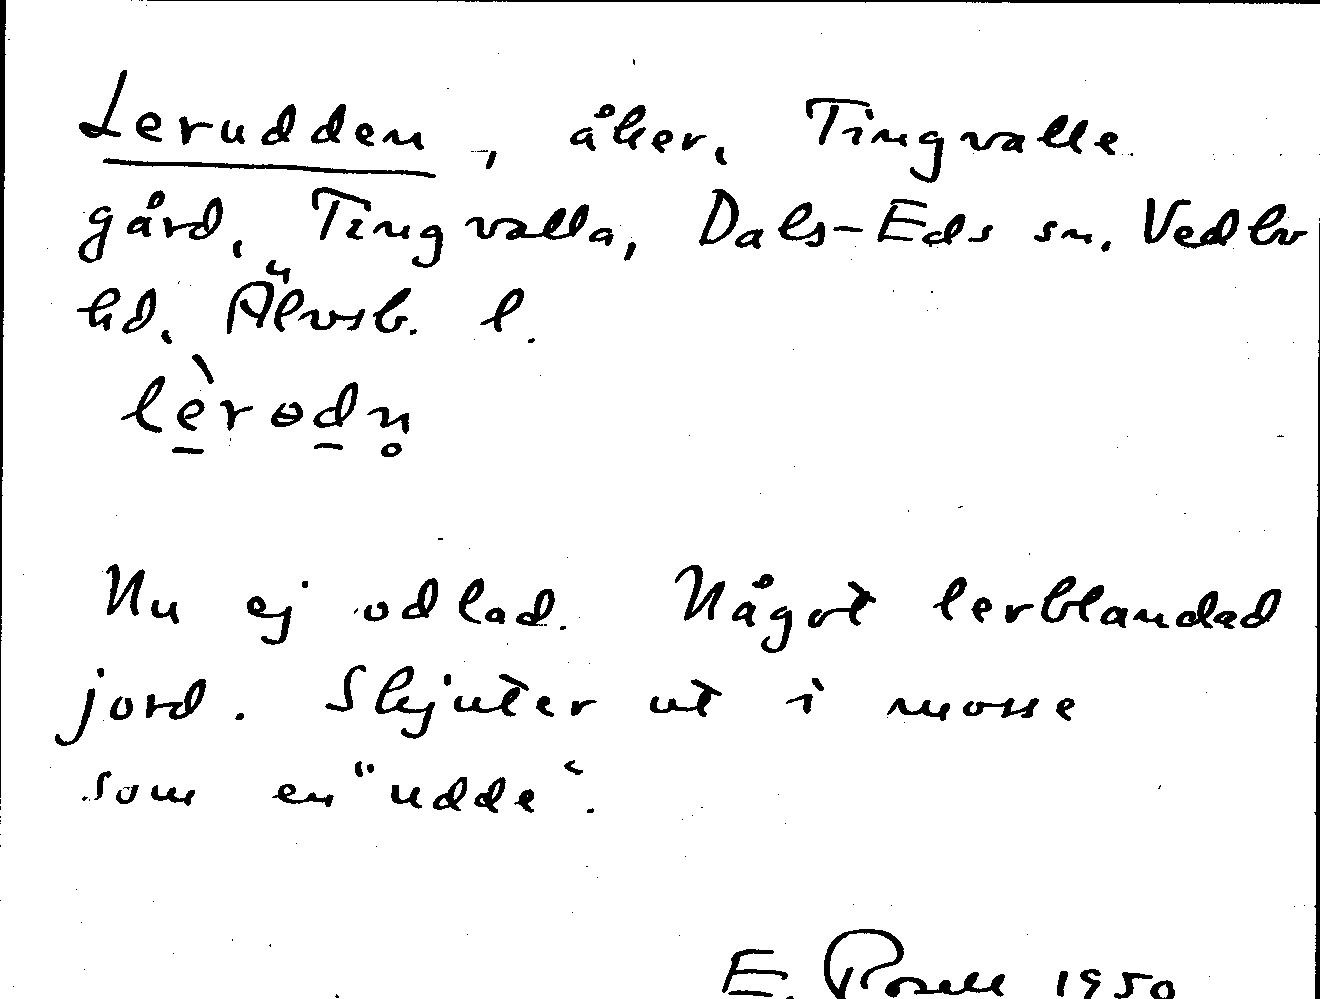 Lerudden, åker, Tingvalla
gård, Tingvalla, Dals-Eds sn. Vedbo
hd. Älvsb. l.
lè̠rɵd̠n̥
Nu ej odlad. Något lerblandad
jord. Skjuter ut i mosse
som en "udde".
E. Rosell 1950